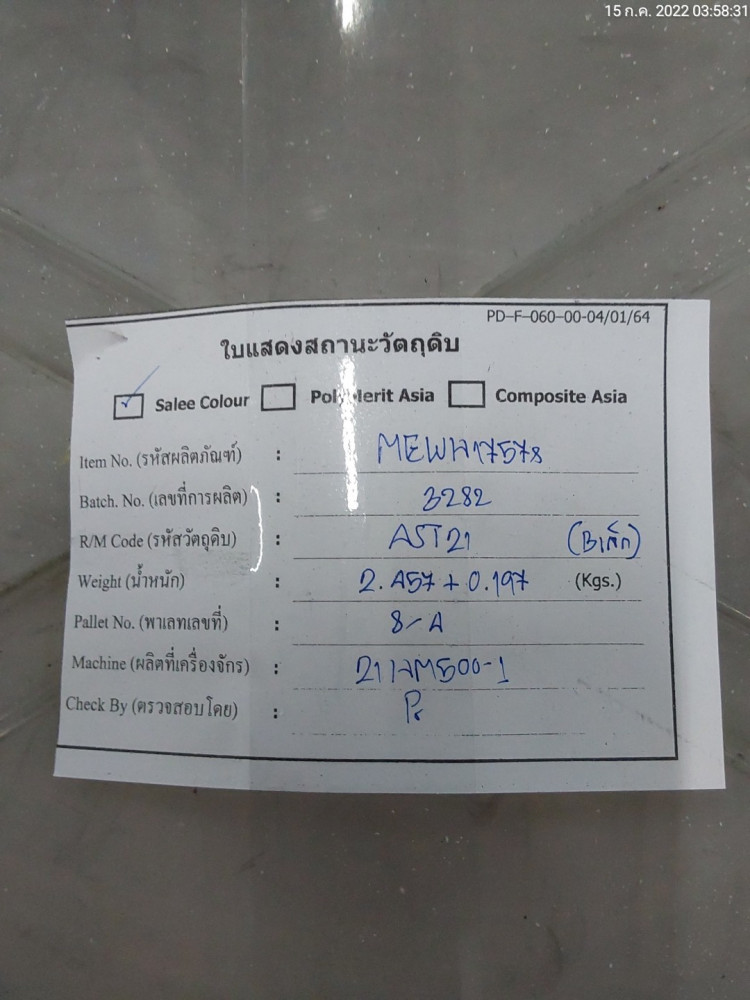 15 ก.ค. 2022 03:58:31
PD-F-060-00-04/01/64
ใบแสดงสถานะวัตถุดิบ
Salee Colour Polymerit Asia Composite Asia
Item No. (รหัสผลิตภัณฑ์) : MEWH17578
Batch. No. (เลขที่การผลิต) : 3282
R/M Code (รหัสวัตถุดิบ) : AST21 (Bเล็ก)
Weight (น้ำหนัก) : 2.457 + 0.197 (Kgs.)
Pallet No. (พาเลทเลขที่) : 8-A
Machine (ผลิตที่เครื่องจักร) : 21HM500-1
Check By (ตรวจสอบโดย) :